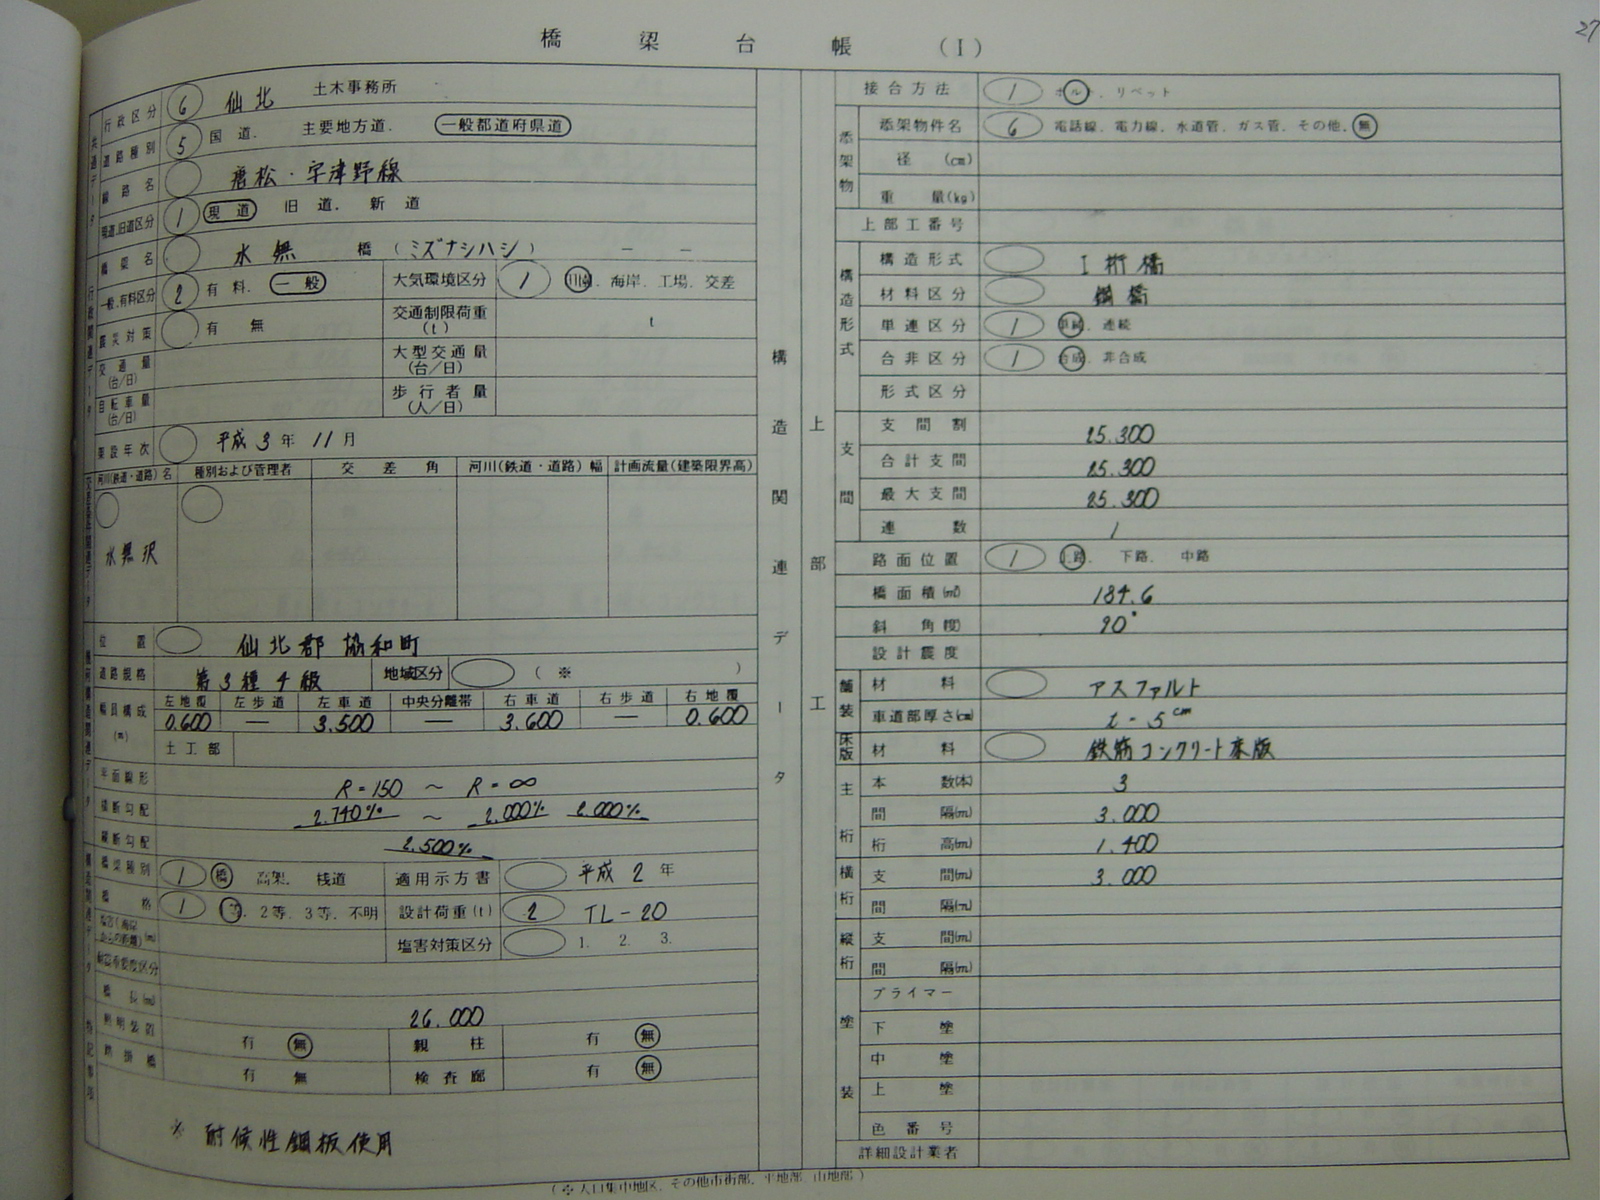 27
橋梁台帳 (I)
共通データ
行政区分 6 仙北 土木事務所
道路種別 5 国道. 主要地方道. 一般都道府県道
路線名 唐松・宇津野線
現道.旧道区分 1 現道 旧道. 新道
橋梁名 水無 橋 (ミズナシハシ) — —
行政関連データ
一般.有料区分 2 有料. 一般 大気環境区分 1 田園. 海岸. 工場. 交差
震災対策 有 無 交通制限荷重(t) t
交通量(台/日) 大型交通量(台/日)
自転車量(台/日) 歩行者量(人/日)
架設年次 平成3年11月
河川(鉄道・道路)名 種別および管理者 交差角 河川(鉄道・道路)幅 計画流量(建築限界高)
水無沢
位置 仙北郡 協和町
道路規格 第3種4級 地域区分 ( ※ )
幅員構成(m) 左地覆 左歩道 左車道 中央分離帯 右車道 右歩道 右地覆
0.600 — 3.500 — 3.600 — 0.600
土工部
平面線形 R=150 ~ R=∞
縦断勾配 2.740% ~ 2.000% 2.000%
横断勾配 2.500%
構造関連データ
橋梁種別 1 橋 高架. 桟道 適用示方書 平成2年
橋格 1 1等. 2等. 3等. 不明 設計荷重(t) 2 TL-20
塩害(海岸からの距離)(m) 塩害対策区分 1. 2. 3.
耐震重要度区分
橋長(m) 26.000
特記事項
照明装置 有 無 親柱 有 無
添接橋 有 無 検査廊 有 無
※ 耐候性鋼板使用
構造関連データ
上部工
接合方法 1 ボルト. リベット
添架物
添架物件名 6 電話線. 電力線. 水道管. ガス管. その他. 無
径 (cm)
重量(kg)
上部工番号
構造形式
構造形式 I桁橋
材料区分 鋼橋
単連区分 1 単純. 連続
合非区分 1 合成. 非合成
形式区分
支間
支間割 25.300
合計支間 25.300
最大支間 25.300
連数 1
路面位置 1 上路. 下路. 中路
橋面積(㎡) 184.6
斜角(度) 90°
設計震度
舗装
材料 アスファルト
車道部厚さ(cm) t-5cm
床版 材料 鉄筋コンクリート床版
主桁
本数(本) 3
間隔(m) 3.000
桁高(m) 1.400
横桁
支間(m) 3.000
間隔(m)
縦桁
支間(m)
間隔(m)
塗装
プライマー
下塗
中塗
上塗
色番号
詳細設計業者
(※人口集中地区. その他市街部. 平地部. 山地部)